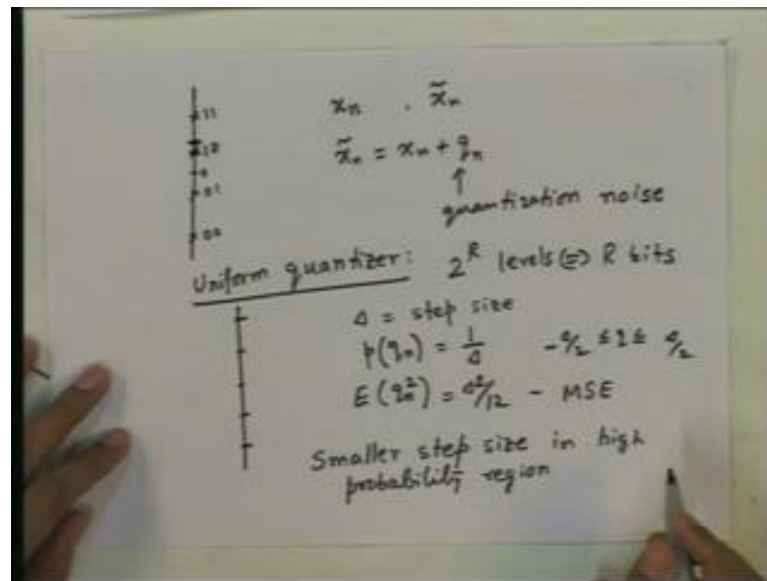 11
10
0
01
00
xₙ , x̃ₙ
x̃ₙ = xₙ + qₙ
↑
quantization noise
Uniform quantizer: 2^R levels (≡) R bits
Δ = step size
p(qₙ) = 1/Δ -Δ/2 ≤ q ≤ Δ/2
E(qₙ²) = Δ²/12 - MSE
Smaller step size in high
probability region